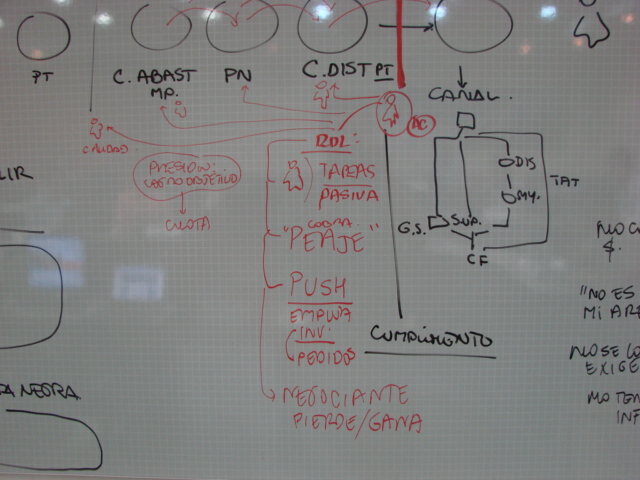 PT
C. ABAST
MP.
PN
C. DIST PT
CANAL.
CALIDAD
AC
ROL:
PRESION:
CUOTA
TAREAS
PASIVA
COBRA
"PEAJE"
PUSH
EMPUJA
INV.
PEDIDOS
NEGOCIANTE
PIERDE/GANA
CUMPLIMIENTO
DIS
MY.
TAT
G.S.
SUP.
CF
LIR
A NEGRA
NO C
$.
"NO ES
MI AR
NO SE CO
EXIGE
NO TEN
INF